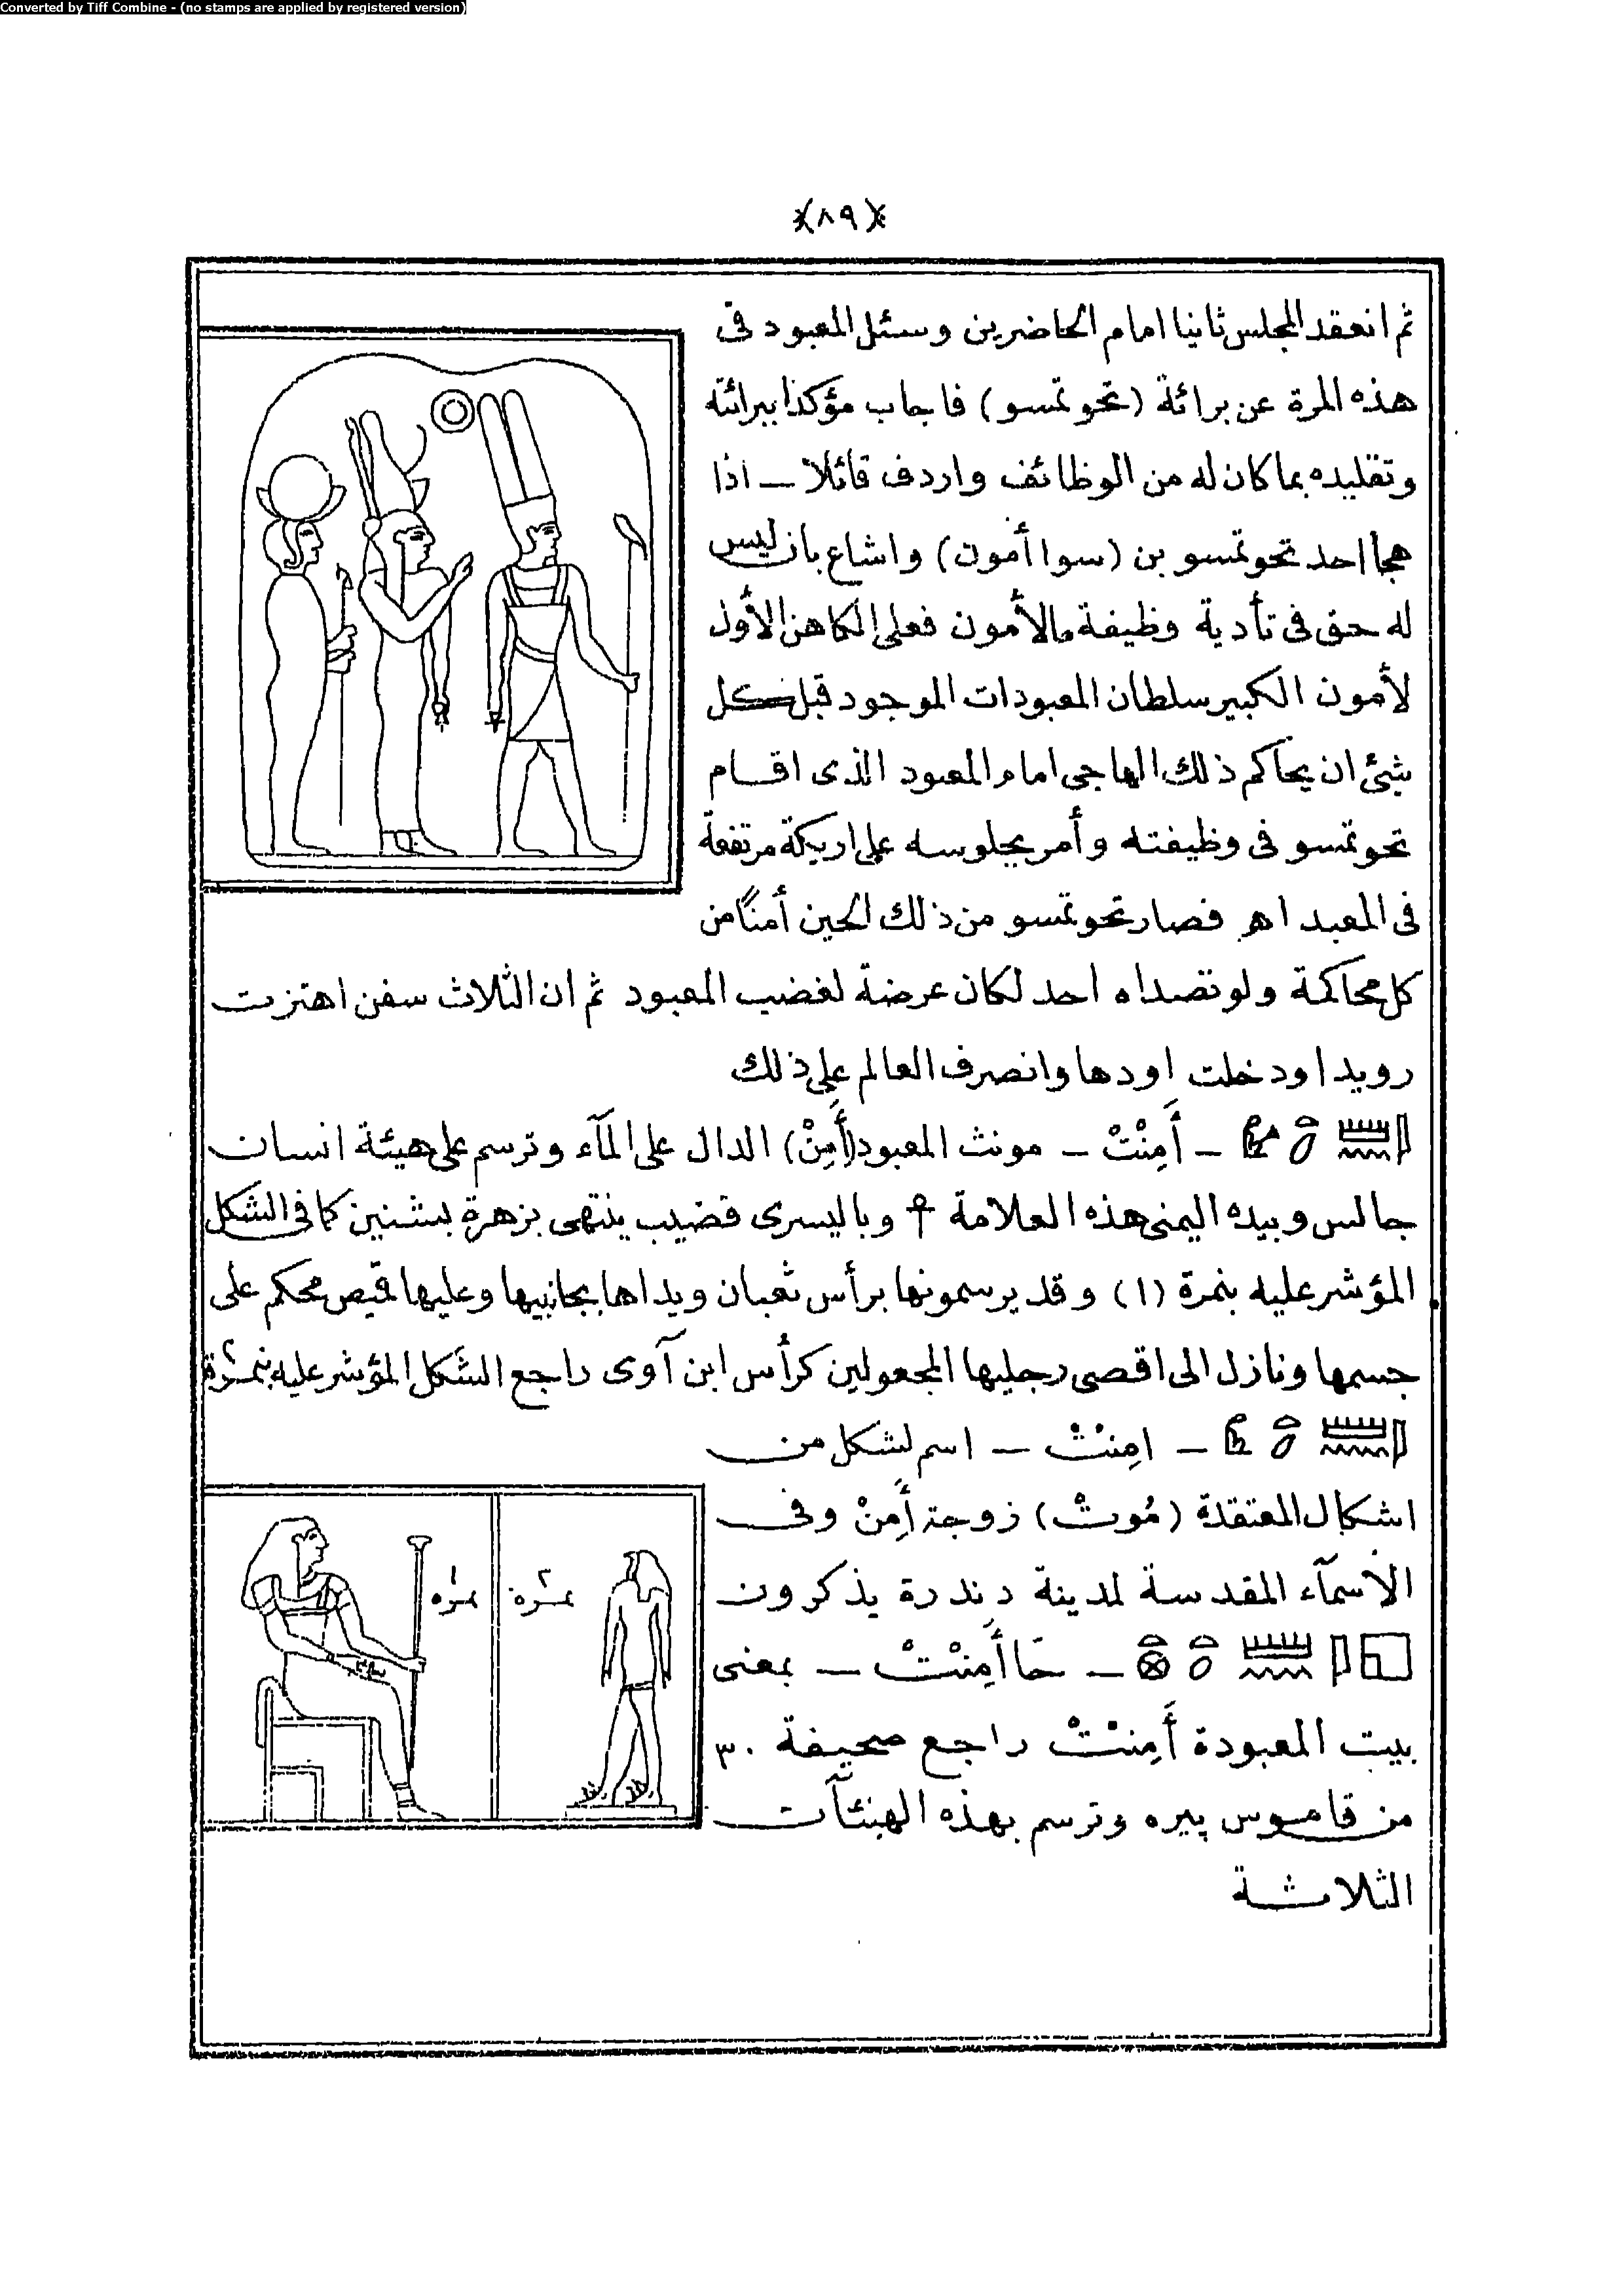 Converted by Tiff Combine - (no stamps are applied by registered version)
(٨٩)
ثم انعقد المجلس ثانيا امام الحاضرين وسئل المعبود فى
هذه المرة عن برائة (تحوتمسو) فاجاب مؤكدا ببرائته
وتقليده بما كان له من الوظائف واردف قائلا ــ اذا
هجا احد تحوتمسو بن (سوا أمون) واشاع بان ليس
له حق فى تأدية وظيفة مالأمون فعلى الكاهن الأول
لأمون الكبير سلطان المعبودات الموجود قبل كل
شئ ان يحاكم ذلك الهاجى امام المعبود الذى اقام
تحوتمسو فى وظيفته وأمر بجلوسه على اريكة مرتفعة
فى المعبد اهـ فصار تحوتمسو من ذلك الحين أمنًا من
كل محاكمة ولو تصداه احد لكان عرضة لغضب المعبود ثم ان الثلاث سفن اهتزت
رويدا ودخلت اودها وانصرف العالم على ذلك
ــ أَمِنْتْ ــ مونث المعبود (أَمِنْ) الدال على المآء وترسم على هيئة انسان
جالس وبيده اليمنى هذه العلامة ☥ وباليسرى قضيب ينتهى بزهرة بشنين كما فى الشكل
المؤشر عليه بنمرة (١) وقد يرسمونها برأس ثعبان ويداها بجانبيها وعليها قميص محكم على
جسمها ونازل الى اقصى رجليها المجعولين كرأس ابن آوى راجع الشكل المؤشر عليه بنمرة ٢
ــ امِنْتْ ــ اسم لشكل من
اشكال المعتقدة (مُوتْ) زوجة أَمِنْ وفى
الأسمآء المقدسة لمدينة دندرة يذكرون
ــ حَاأَمِنْتْ ــ بمعنى
بيت المعبودة أَمِنْتْ راجع صحيفة ٣٠
من قاموس پيره وترسم بهذه الهيئآت
الثلاثة
نمرة ١
نمرة ٢